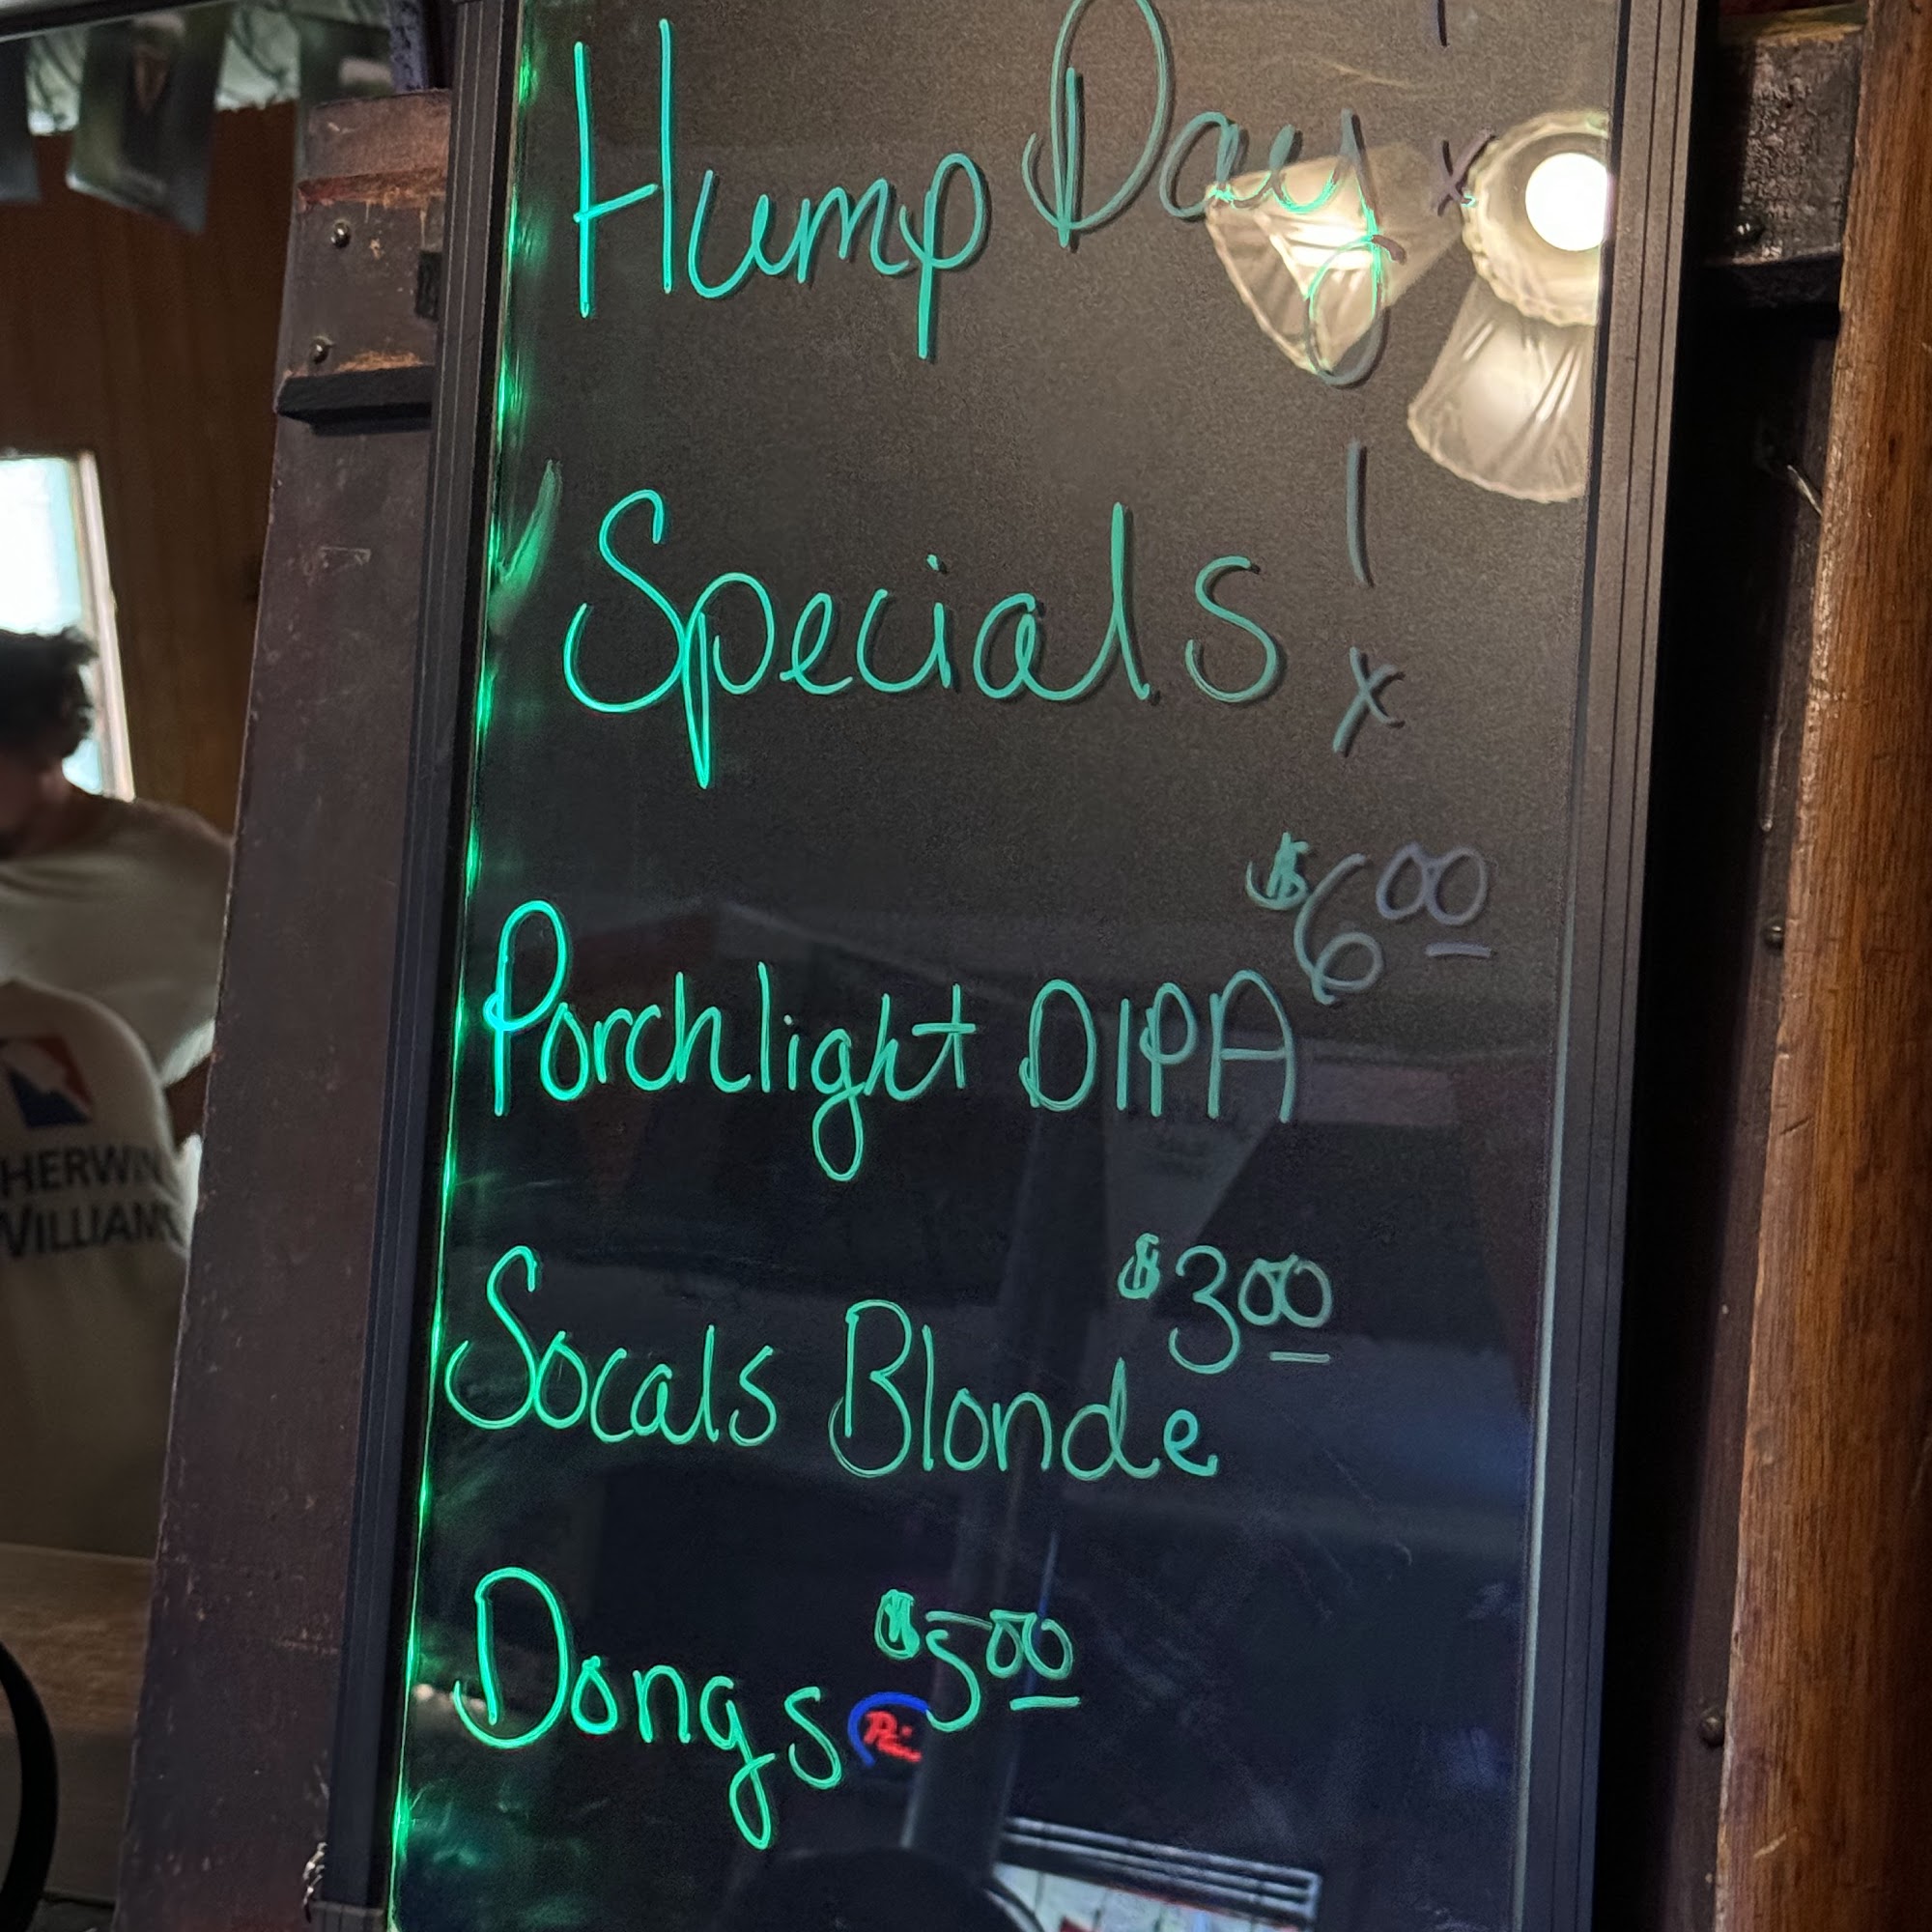 Hump Day!
Specials!
$6.00
Porchlight DIPA
$3.00
Socals Blonde
Dongs $5.00
HERWIN
WILLIAM